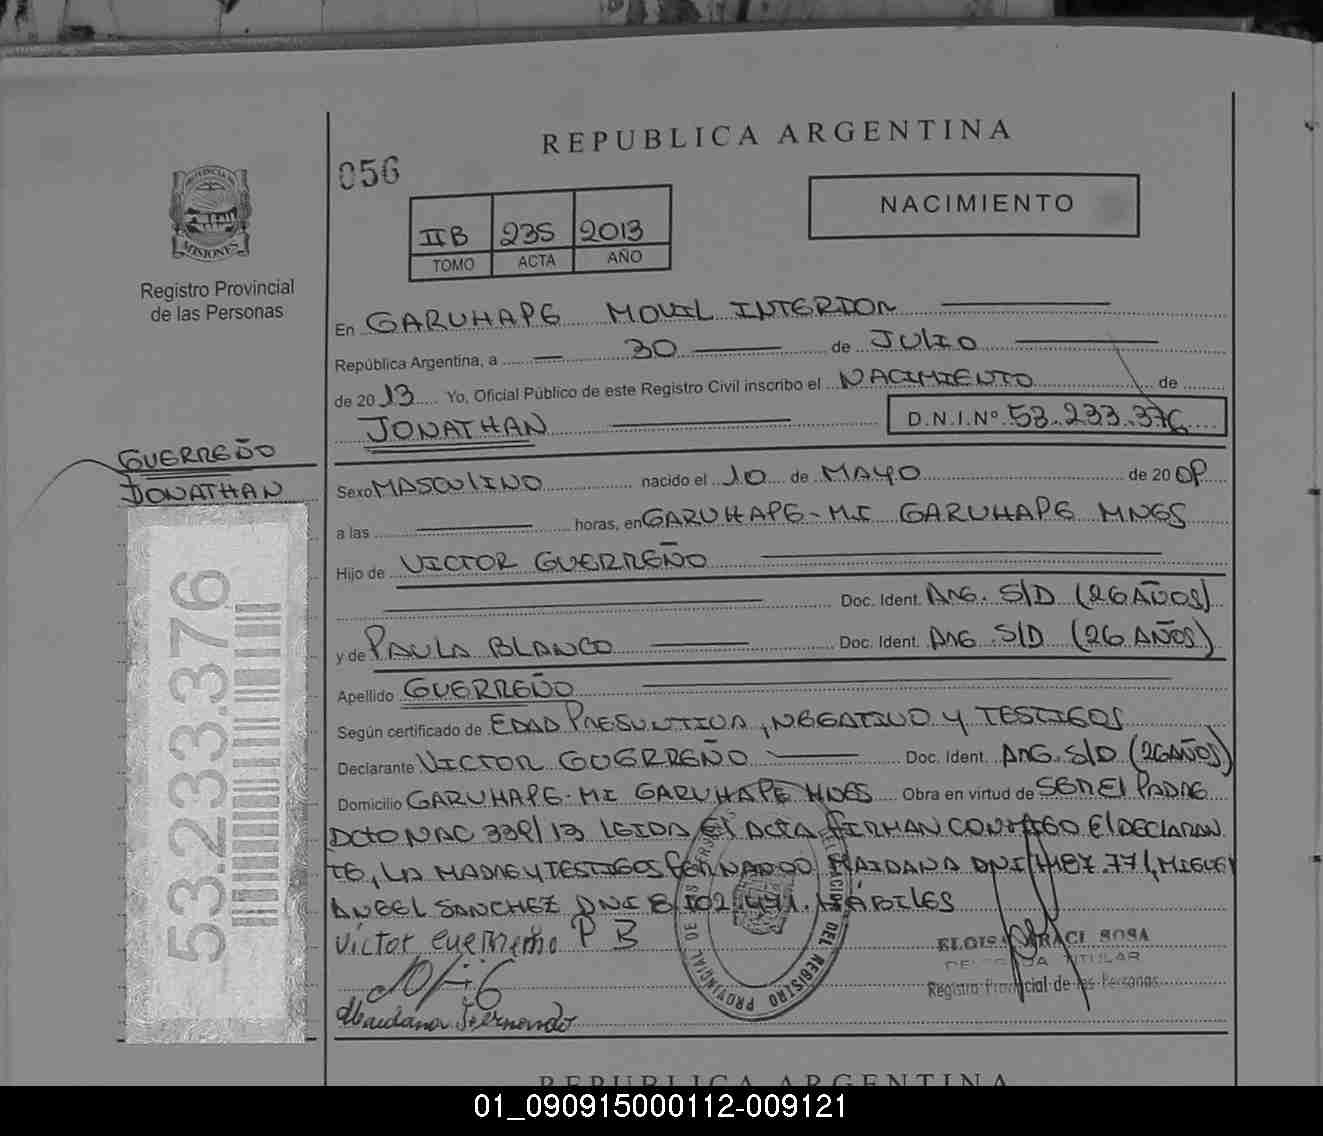 REPUBLICA ARGENTINA
056
NACIMIENTO
IIB 235 2013
TOMO ACTA AÑO
PROVINCIA DE
MISIONES
Registro Provincial
de las Personas
En GARUHAPE MOVIL INTERIOR
República Argentina, a 30 de JULIO
de 2013 Yo, Oficial Público de este Registro Civil inscribo el NACIMIENTO de
JONATHAN D.N.I.Nº 53.233.376
GUERREÑO
JONATHAN
53.233.376
Sexo MASCULINO nacido el 10 de MAYO de 20
a las horas, en GARUHAPE-MI GARUHAPE MNES
Hijo de VICTOR GUERREÑO
Doc. Ident. ARG. S/D (26 AÑOS)
y de PAULA BLANCO Doc. Ident. ARG S/D (26 AÑOS)
Apellido GUERREÑO
Según certificado de EDAD PRESUNTIVA, NEGATIVO Y TESTIGOS
Declarante VICTOR GUERREÑO Doc. Ident. ARG. S/D (26 AÑOS)
Domicilio GARUHAPE-MI GARUHAPE MNES Obra en virtud de SER EL PADRE
DCTO NAC 339/13 LEIDA EL ACTA FIRMAN CONMIGO EL DECLARAN
TE, LA MADRE Y TESTIGOS FERNANDO MAIDANA DNI MIGUEL
ANGEL SANCHEZ DNI HÁBILES
Victor Guerreño P B
SOSA
TITULAR
Registro Provincial de las Personas
Maidana Fernando
REGISTRO PROVINCIAL DE LAS PERSONAS
REPUBLICA ARGENTINA
01_090915000112-009121